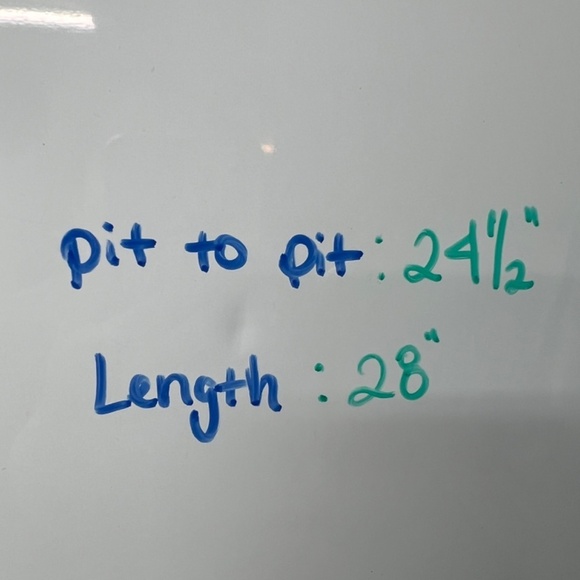 pit to pit : 24 1/2"
Length : 28"